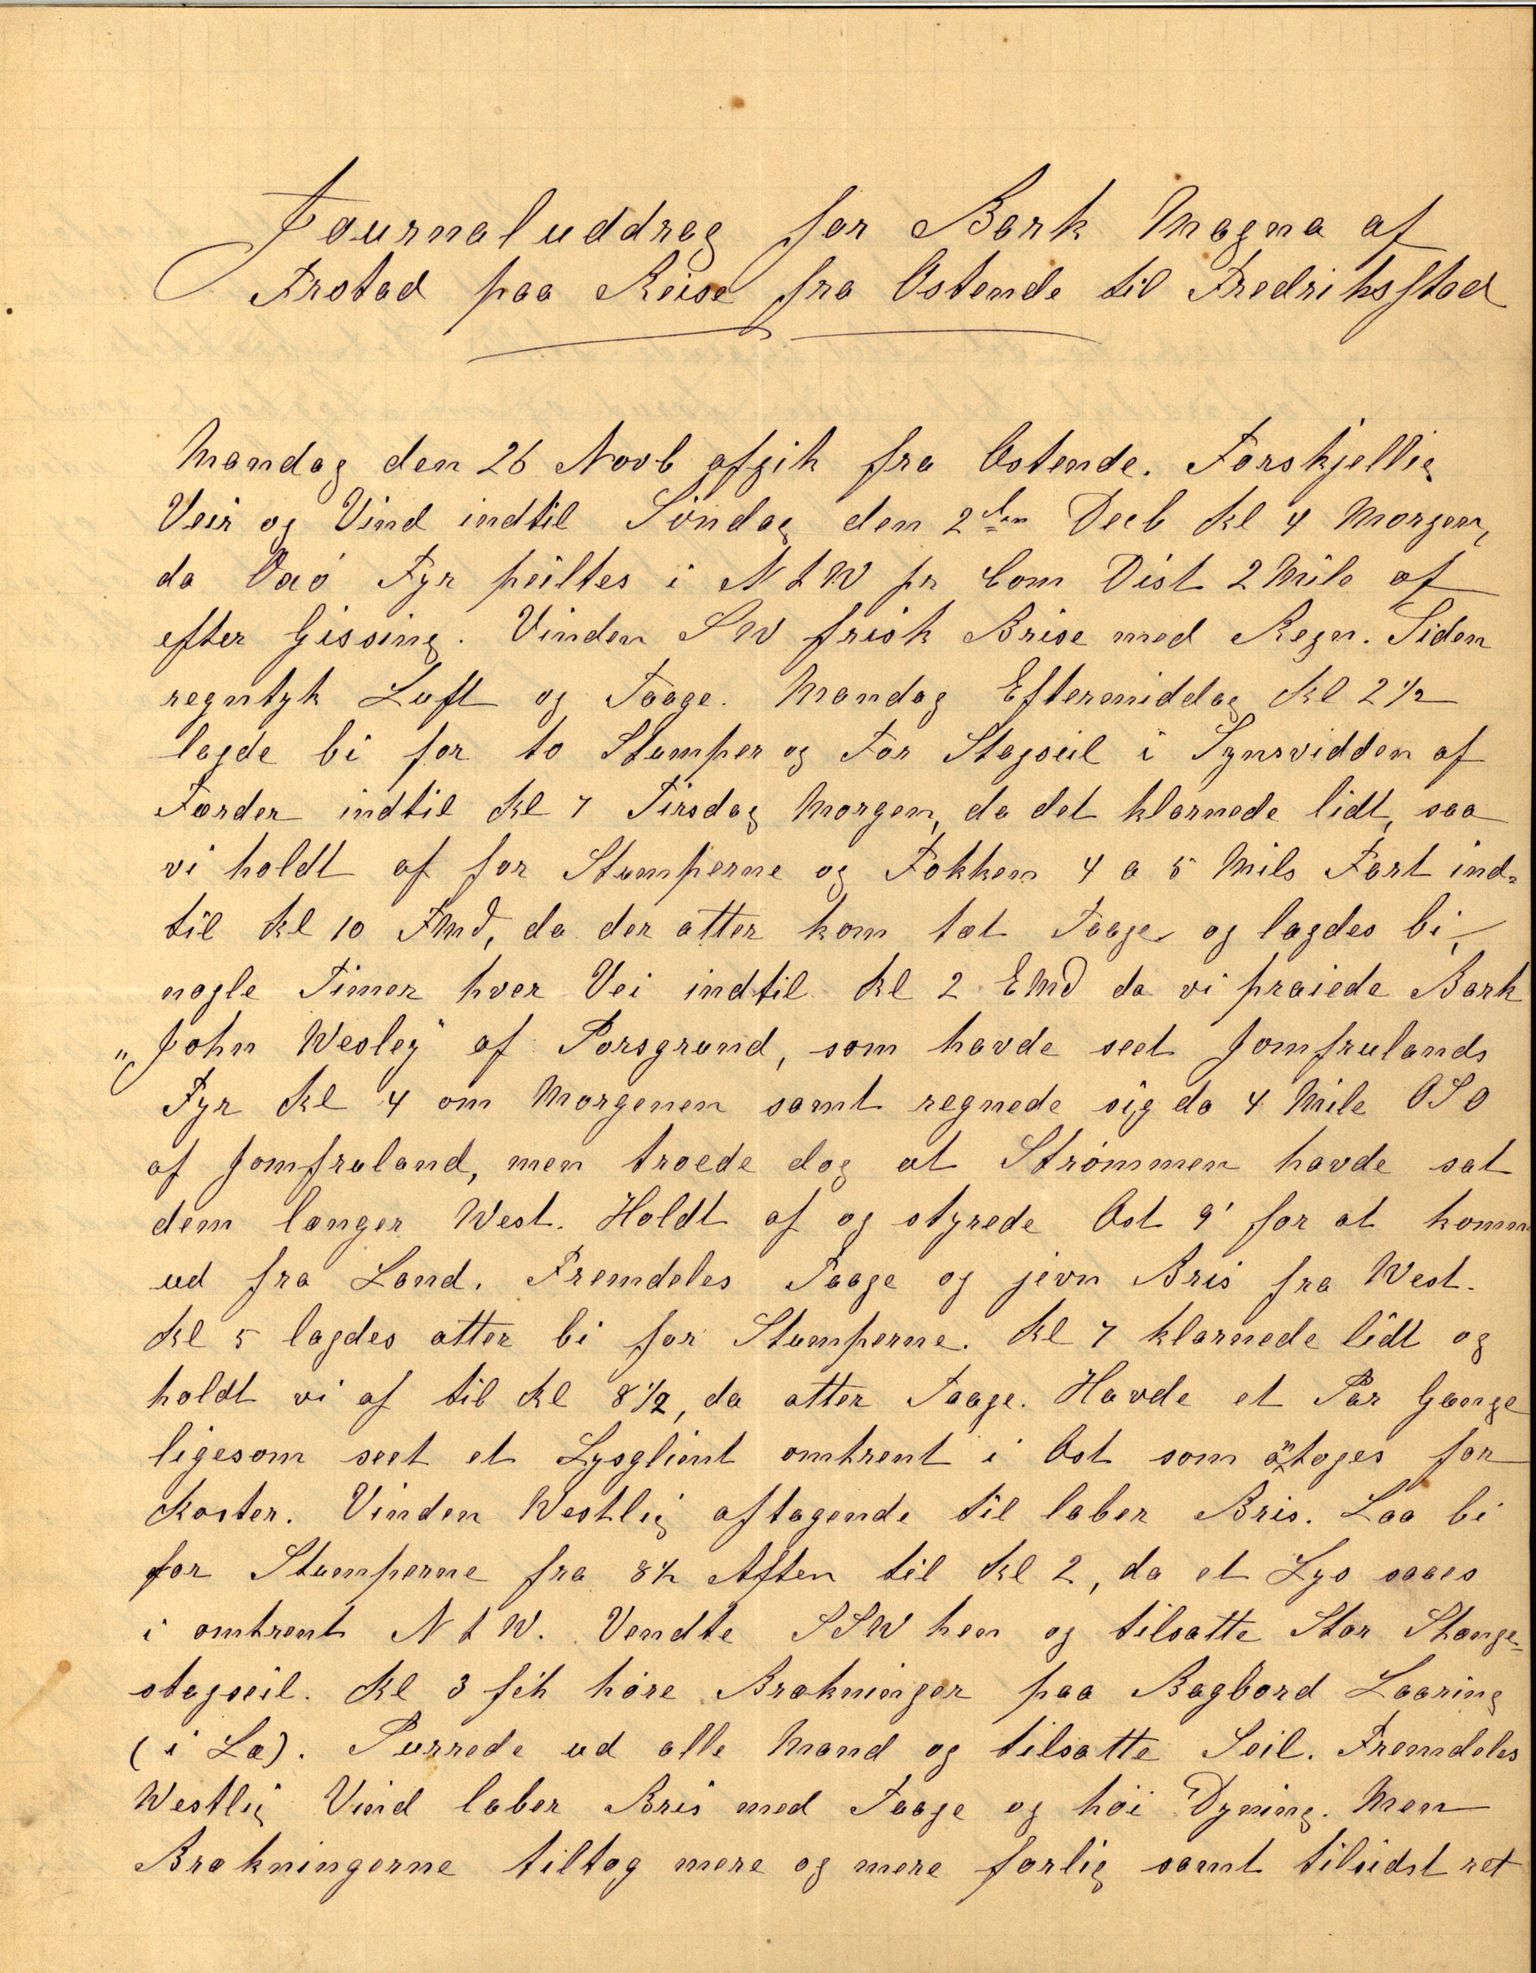 Journaluddrag for Bark Magna af
Frstad paa Reise fra Ostende til Fredriksstad
Mandag den 26 Novb afgik fra Ostende. Forskjellig
Veir og Vind indtil Söndag den 2den Decb Kl 4 Morgen,
da Oxö Fyr peiltes i N t W pr Com Dist 2 Mile af
efter Gissing. Vinden SW frisk Brise med Regn. Siden
regntyk Luft og Taage. Mandag Eftermiddag Kl 2 1/2
lagde bi for to Stumper og For Stagseil i Synsvidden af
Færder indtil Kl 7 Tirsdag Morgen, da det klarnede lidt, saa
vi holdt af for Stumperne og Fokken 4 a 5 Mils Fart ind-
til Kl 10 FMd, da der atter kom tæt Taage og lagdes bi,
nogle Timer hver Vei indtil Kl 2 EMd da vi praiede Bark
"John Wesley" af Porsgrund, som havde seet Jomfrulands
Fyr Kl 4 om Morgenen samt regnede sig da 4 Mile OSO
af Jomfruland, men troede dog at Strømmen havde sat
dem længer West. Holdt af og styrede Ost 9' for at komm
ud fra Land. Fremdeles Taage og jevn Bris fra West.
Kl 5 lagdes atter bi for Stumperne. Kl 7 klarnede lidt og
holdt vi af til Kl 8 1/2, da atter Taage. Havde et Par Gange
ligesom seet et Lysglimt omtrent i Ost som antoges for
Koster. Vinden Westlig aftagende til laber Bris. Laa bi
for Stumperne fra 8 1/2 Aften til Kl 2, da et Lys saaes
i omtrent N t W. Vendte SSW hen og tilsatte Stor Stænge-
stagseil. Kl 3 fik høre Brækninger paa Bagbord Laaring
(i Læ). Purrede ud alle Mand og tilsatte Seil. Fremdeles
Westlig Vind laber Bris med Taage og höi Dyning. Men
Brækningerne tiltog mere og mere farlig samt tilsidst ret